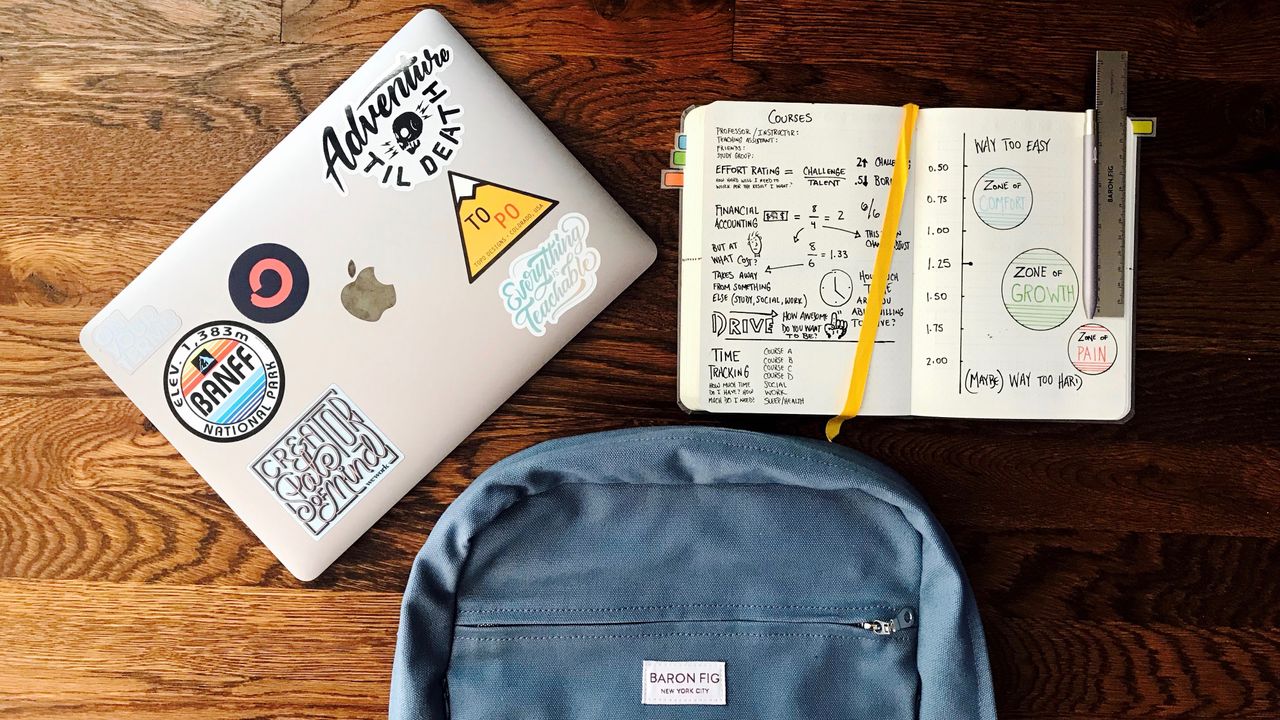 Adventure
TIL DEATH
TO
PO
TOPO DESIGNS • COLORADO, USA
Everything
is
Teachable
ELEV. 1,383m
BANFF
NATIONAL PARK
CREATOR
State
OF Mind
wework
COURSES
PROFESSOR / INSTRUCTOR:
TEACHING ASSISTANT:
FRIENDS:
STUDY GROUP:
EFFORT RATING = CHALLENGE
TALENT
HOW HARD WILL I NEED TO
WORK FOR THE RESULT I WANT?
2↑
.5↓
FINANCIAL
ACCOUNTING
= 8
4 = 2
6/6
→ THIS
BUT AT
WHAT COST?
8
6 = 1.33
TAKES AWAY
FROM SOMETHING
ELSE (STUDY, SOCIAL, WORK)
HOW MUCH
TIME
ARE YOU
WILLING
TO
DRIVE
HOW AWESOME
DO YOU WANT
TO BE?
TIME
TRACKING
HOW MUCH TIME
DO I HAVE? HOW
MUCH DO I NEED?
COURSE A
COURSE B
COURSE C
COURSE D
SOCIAL
WORK
SLEEP/HEALTH
WAY TOO EASY
0.50
0.75
1.00
1.25
1.50
1.75
2.00
ZONE OF
COMFORT
ZONE OF
GROWTH
ZONE OF
PAIN
(MAYBE) WAY TOO HARD
BARON FIG
BARON FIG
NEW YORK CITY